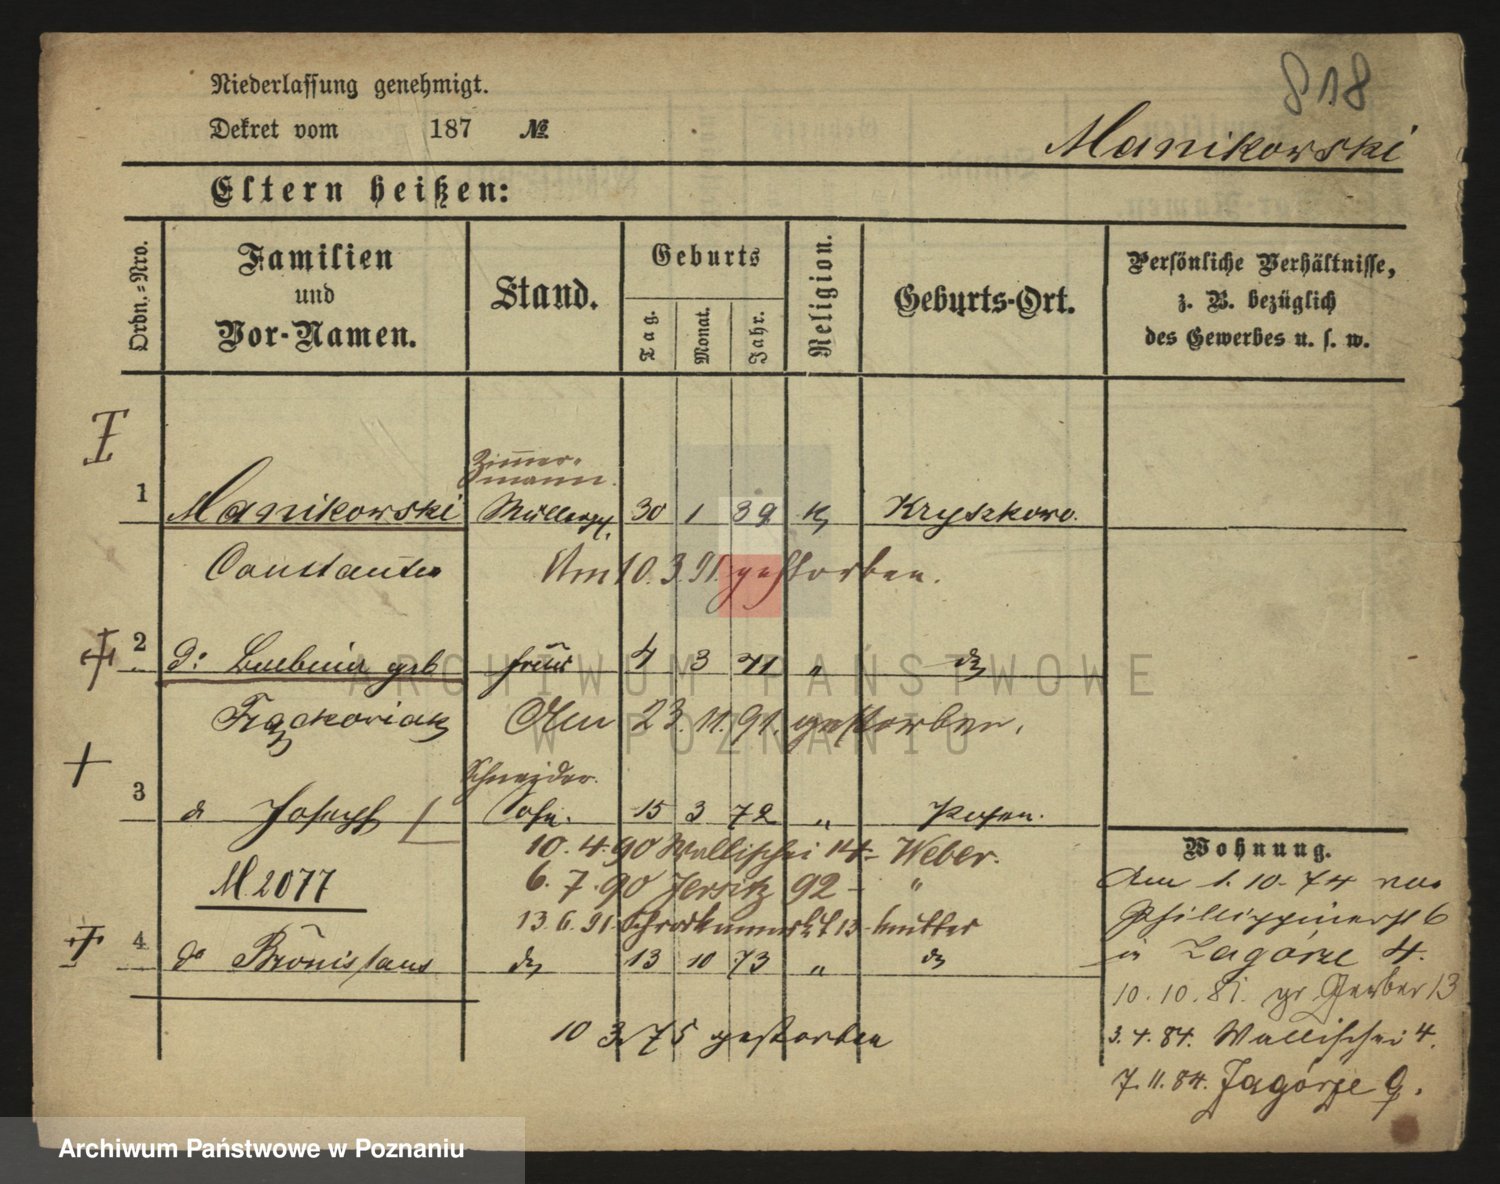 Niederlassung genehmigt.
818
Dekret vom 187 №
Manikowski
Eltern heißen:
Ordn.-Nro.
Familien und Vor-Namen.
Stand.
Geburts
Tag.
Monat.
Jahr.
Religion.
Geburts-Ort.
Persönliche Verhältnisse,
z. B. bezüglich
des Gewerbes u. s. w.
Zimmer-
mann.
1 Manikowski 30 1 39 k Kryszkowo.
Am 10.3.91. gestorben.
2 d: gb frau 4 3 71 " do
Frąckoviak Am 23.11.91. gestorben.
Schneider.
3 do Joseph Sohn. 15 3 72 " Posen.
10.4.90 Wallischei 14- Weber.
M. 2077
6.7.90 Jersitz 92 - "
13.6.91. 13
4 do Bronislaus do 13 10 73 " do
10 3 75 gestorben
Wohnung.
Am 1.10.74 von
6
in Zagórze 4.
10.10.81. gr. Gerber 13
3.4.84. Wallischei 4.
7.11.84. Zagórze 9.
ARCHIWUM PAŃSTWOWE
W POZNANIU
Archiwum Państwowe w Poznaniu